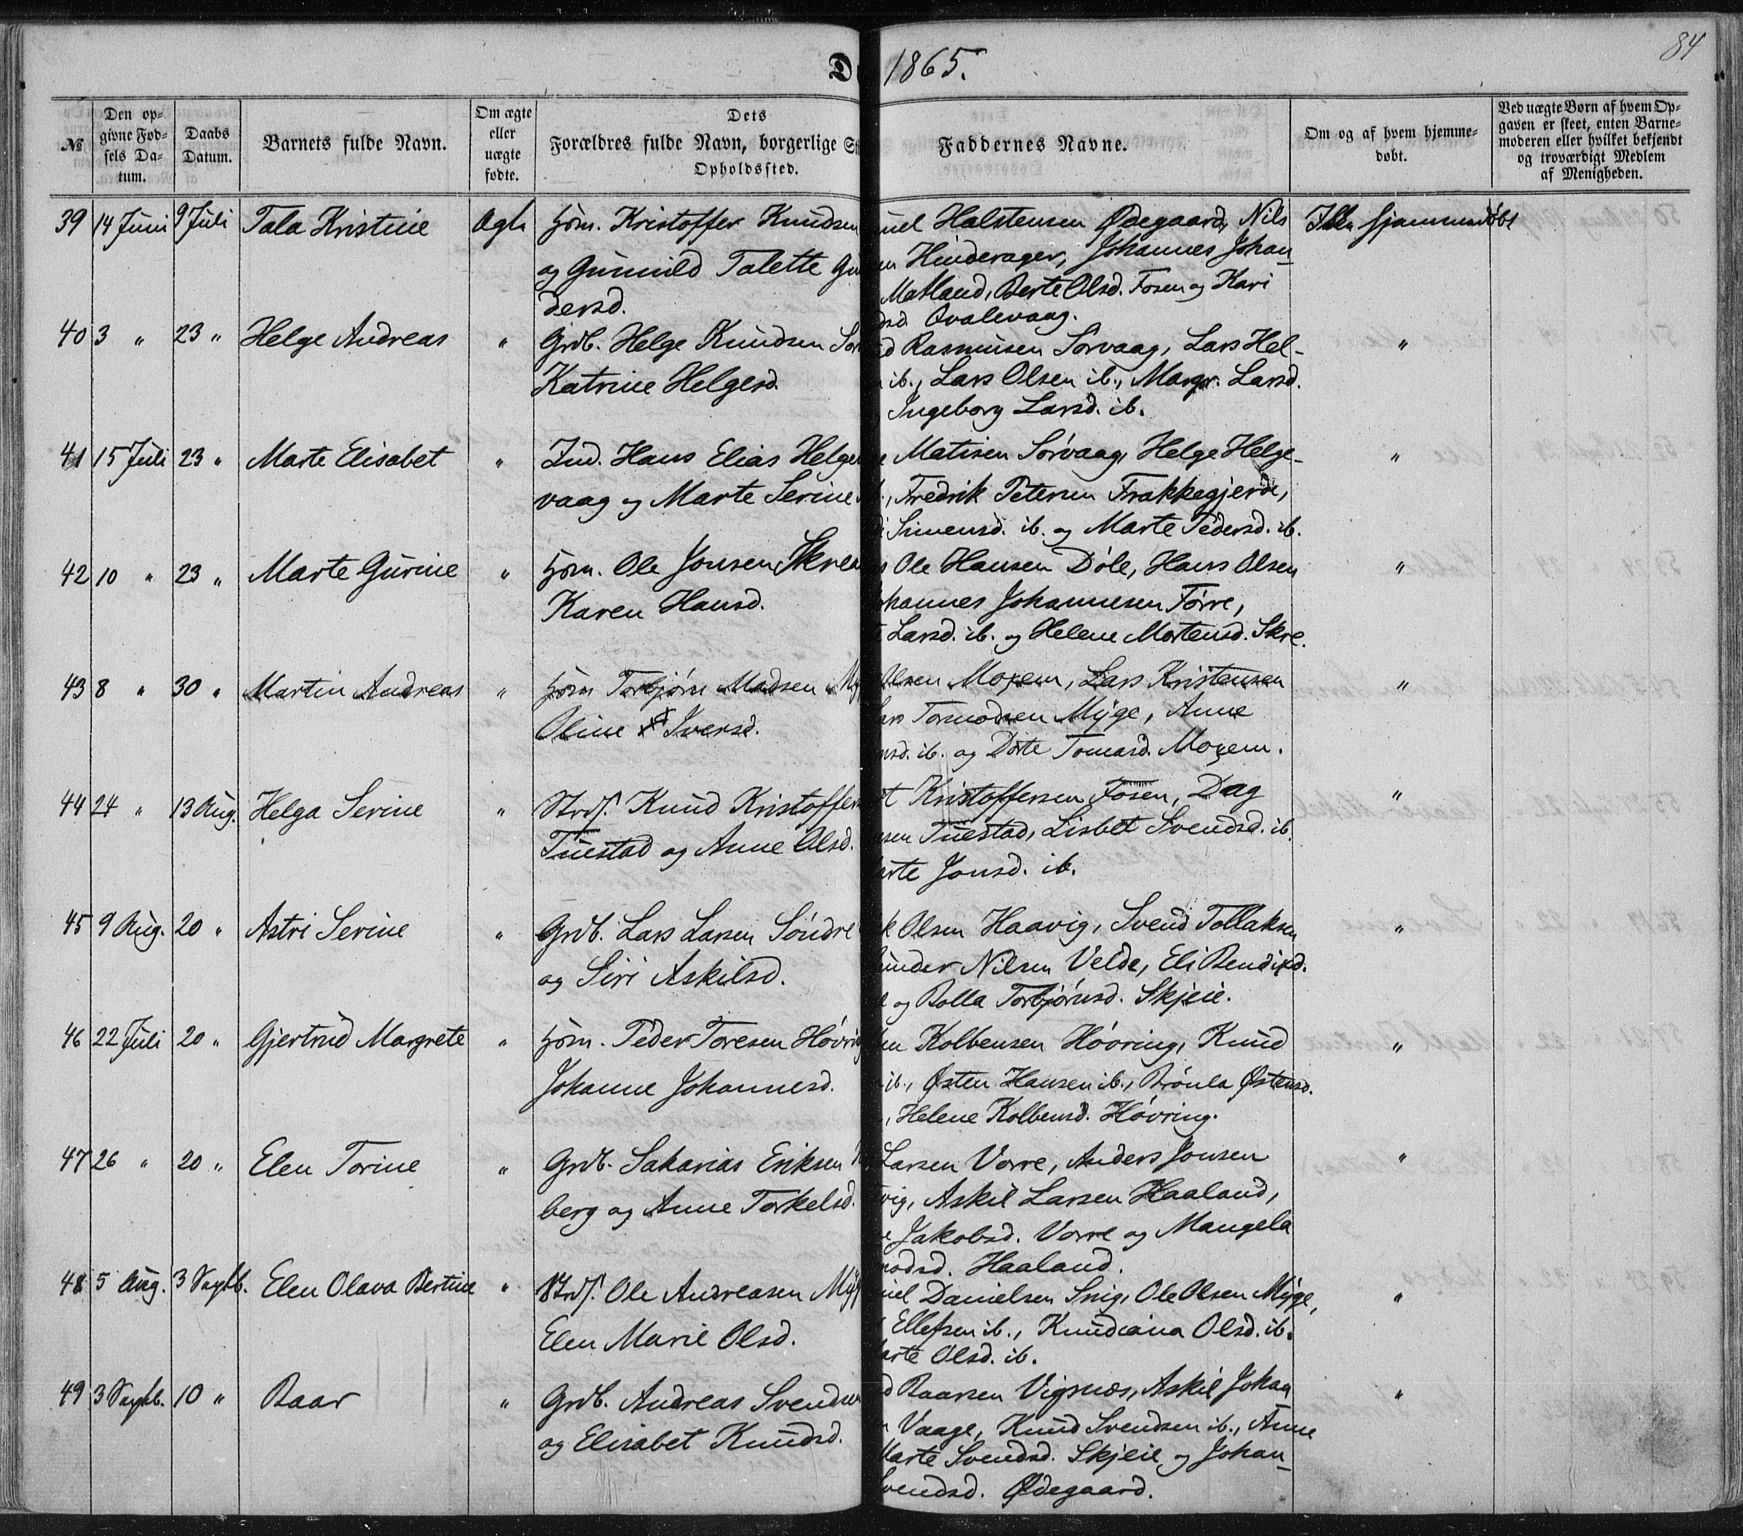 1865.
84
№
Den op-
givne Fød-
sels Da-
tum.
Daabs
Datum.
Barnets fulde Navn.
Om ægte
eller
uægte
fødte.
Dets
Forældres fulde Navn, borgerlige
Opholdssted.
Faddernes Navne.
Om og af hvem hjemme-
døbt.
Ved uægte Børn af hvem Op-
gaven er skeet, enten Barne-
moderen eller hvilket bekjendt
og troværdigt Medlem
af Menigheden.
39 14 Juni 9 Juli Tala Kristine Ægte Hsm. Kristoffer Knudsen
og Gunnild Talette
dersd.
Halstensen Ødegaard, Nils
Hinderager, Johannes Johan-
Matland, Berte Olsd. Fosen og Kari
Qvalevaag.
Ikke hjemmedøbt
40 3 " 23 " Helge Andreas " Grdb. Helge Knudsen
Katrine Helgesd.
Rasmusen Sørvaag, Lars Hel-
ib., Lars Olsen ib., Margr. Larsd.
Ingeborg Larsd. ib.
"
41 15 Juli 23 " Marte Elisabet " Ind. Hans Elias
vaag og Marte Serine
Matisen Sørvaag, Helge Helge-
Fredrik Petersen Frakkegjerde,
Simensd. ib. og Marte Pedersd. ib.
"
42 10 " 23 " Marte Gurine " Hsm. Ole Jonsen Skre
Karen Hansd.
Ole Hansen Døle, Hans Olsen
Johannesen Førre,
Larsd. ib. og Helene Mortensd. Skre.
"
43 8 " 30 " Martin Andreas " Hsm Torbjørn Madsen
Oline Iversd.
Olsen Moxem, Lars Kristensen
Tormodsen Myge, Anne
ib. og Dorte Tomasd. Moxem.
"
44 24 " 13 Aug. Helga Serine " Strds. Knud
Tuestad og Anne Olsd.
Kristoffersen Fosen, Dag
Tuestad, Lisbet Svendsd. ib.
Jonsd. ib.
"
45 9 Aug. 20 " Astri Serine " Grdb. Lars Larsen Søndre
og Siri Askilsd.
Olsen Haavig, Svend Tollaksen
Nilsen Velde, Eli Bendixd.
og Bolla Torbjørnsd. Skjeie.
"
46 22 Juli 20 " Gjertrud Margrete " Hsm. Peder Toresen
Johanne Johannesd.
Kolbensen Høvring, Knud
ib., Østen Hansen ib., Brønla Østensd.
Helene Kolbensd. Høvring.
"
47 26 " 20 " Elen Torine " Grdb. Sakarias Eriksen
berg og Anne Torkelsd.
Larsen Vorre, Anders Jonsen
Askil Larsen Haaland,
Jakobsd. Vorre og Mangela
Haaland.
"
48 5 Aug. 3 Septb. Elen Olava Bertine " Strds. Ole Andreasen
Elen Marie Olsd.
Danielsen Snig, Ole Olsen Myge,
Ellefsen ib., Knudiana Olsd. ib.
Olsd. ib.
"
49 3 Septb. 10 " Baar " Grdb. Andreas Svendsen
og Elisabet Knudsd.
Baarsen Vigsnæs, Askil Johan
Vaage, Knud Svendsen ib., Anne
Marte Svendsd. Skjeie, og Johan-
Ødegaard.
"